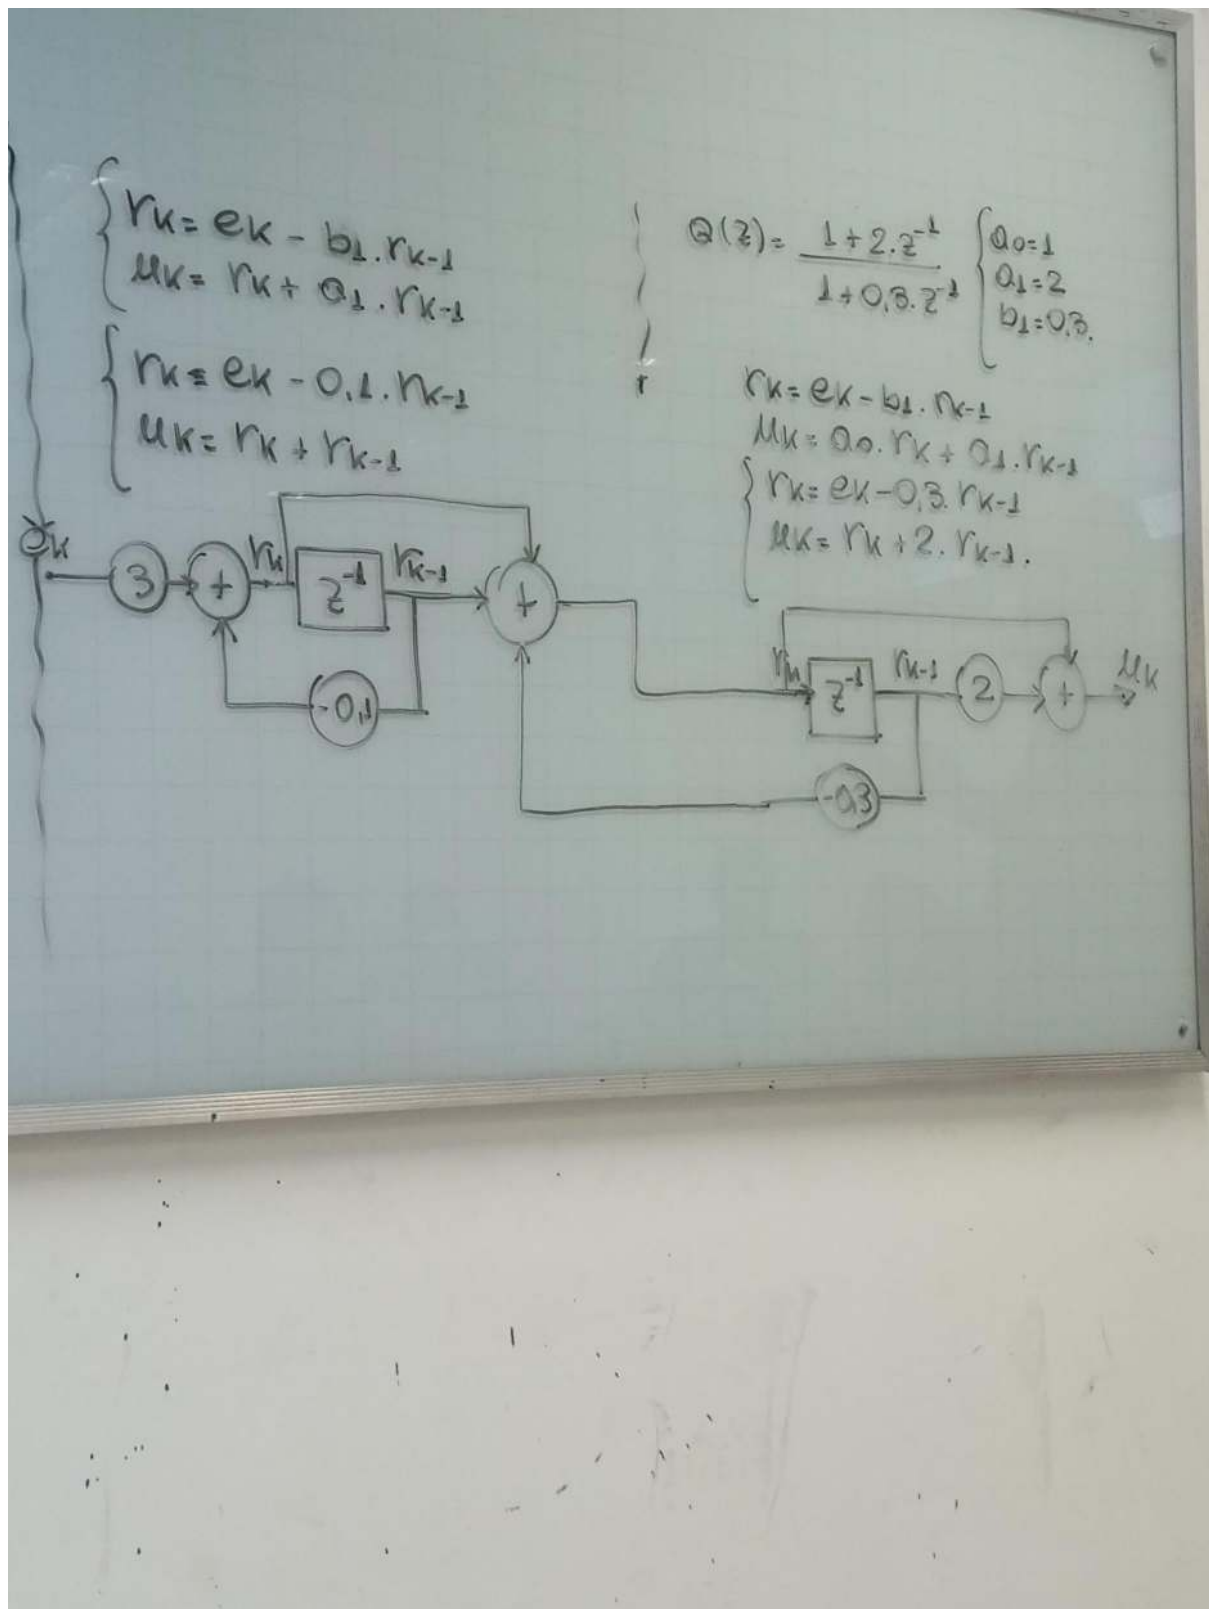 rk= ek - b1.rk-1
uk= rk + a1.rk-1
rk= ek - 0,1.rk-1
uk= rk + rk-1
Q(z)= 1+2.z^-1 / 1+0,3.z^-1
a0=1
a1=2
b1=0,3.
rk= ek - b1.rk-1
uk= a0.rk + a1.rk-1
rk= ek-0,3.rk-1
uk= rk + 2.rk-1.
ek
3
+
rk
z^-1
rk-1
+
-0,1
rk
z^-1
rk-1
2
+
uk
-0,3